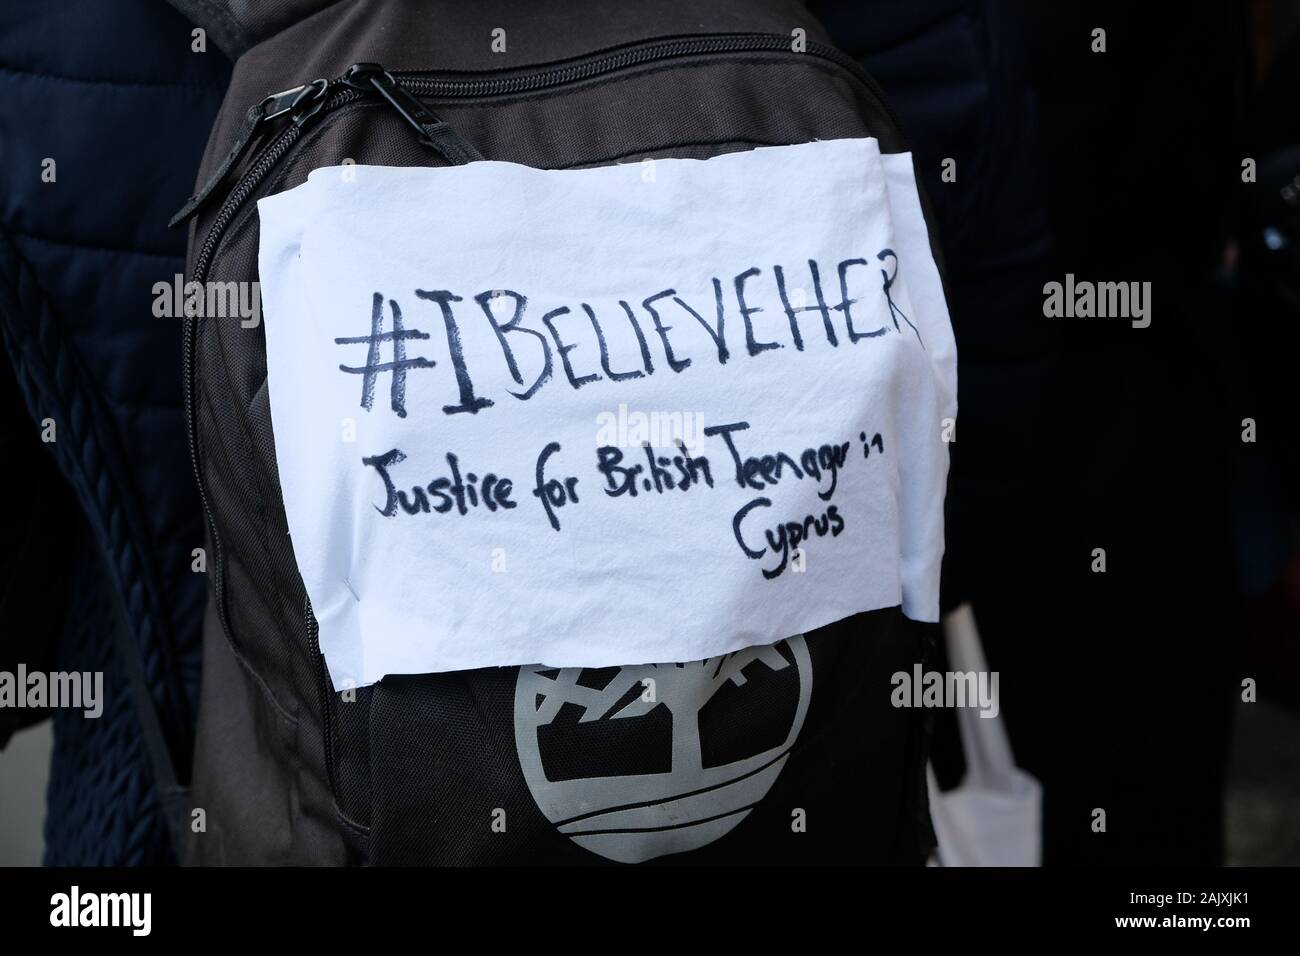 #IBELIEVEHER
Justice for British Teenager in
Cyprus
alamy
alamy
alamy
alamy
alamy
alamy
alamy
Image ID: 2AJXJK1
www.alamy.com